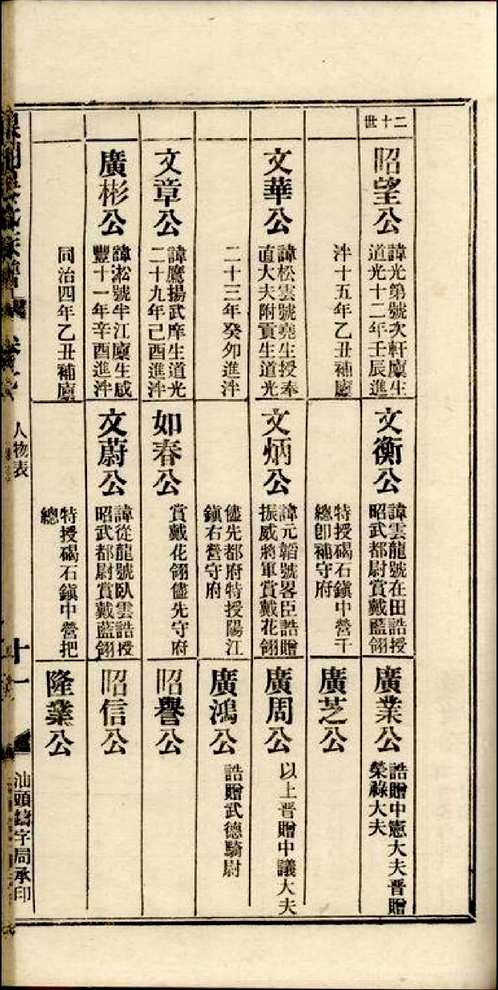 二十世
昭望公
諱光第號次軒廩生
道光十二年壬辰進
泮十五年乙丑補廩
文華公
諱松雲號堯生授奉
直大夫附貢生道光
二十三年癸卯進泮
文章公
諱鷹揚武庠生道光
二十九年己酉進泮
廣彬公
諱淞號半江廩生咸
豐十一年辛酉進泮
同治四年乙丑補廩
文衡公
諱雲龍號在田誥授
昭武都尉賞戴藍翎
特授碣石鎮中營千
總卽補守府
文炳公
諱元韜號畧臣誥贈
振威將軍賞戴花翎
儘先都府特授陽江
鎮右營守府
如春公
賞戴花翎儘先守府
文蔚公
諱從龍號臥雲誥授
昭武都尉賞戴藍翎
特授碣石鎮中營把
總
廣業公
誥贈中憲大夫晋贈
榮祿大夫
廣芝公
廣周公
以上晋贈中議大夫
廣鴻公
誥贈武德騎尉
昭譽公
昭信公
隆業公
人物表
十一
汕頭鑄字局承印